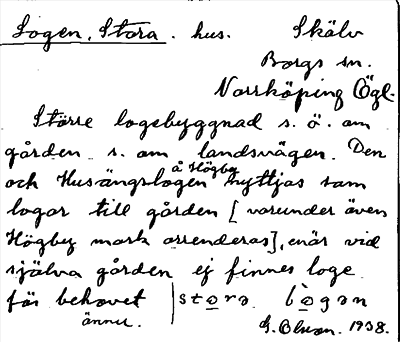 Logen, Stora. hus. Skälv
Borgs sn.
Norrköping Ögl.
Större logebyggnad s. ö. om
gården s. om landsvägen. Den
och Husängslogen å Högby nyttjas som
logar till gården [varunder även
Högby mark arrenderas], enär vid
själva gården ej finnes loge
för behovet | stora lògən
ännu.
G. Olson. 1938.